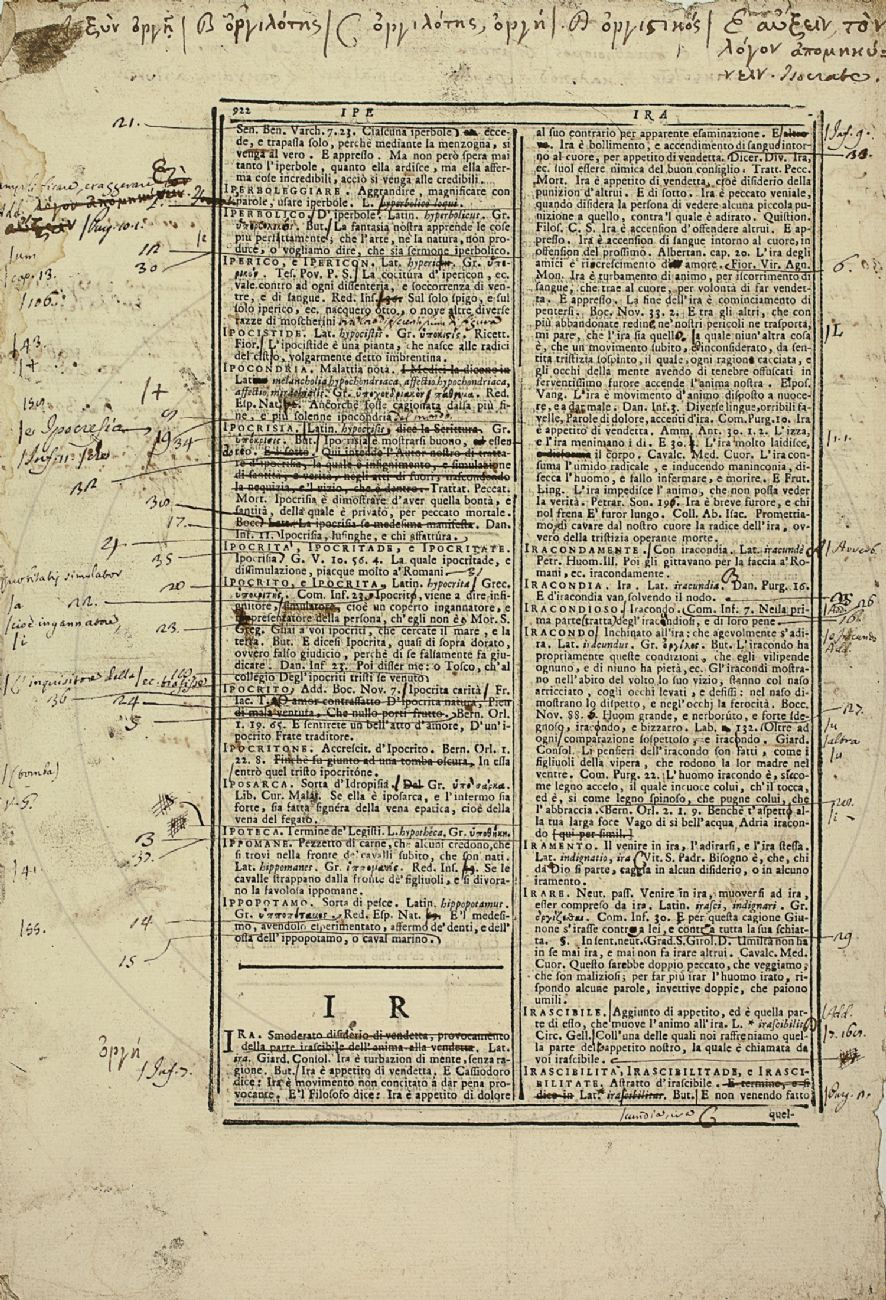 Ξὺν ὀργῇ | B ὀργιλότης | C ὀργιλότης, ὀργή | A ὀργιστικός | E αὔξειν, τὸν
λόγον ἀπομηκύ=
νειν. Isocrate.
922 IPE IRA
21.
Sen. Ben. Varch. 7. 23. Ciascuna iperbole ecce-
de, e trapassa solo, perchè mediante la menzogna, si
venga al vero. E appresso. Ma non però spera mai
tanto l'iperbole, quanto ella ardisce, ma ella affer-
ma cose incredibili, acciò si venga alle credibili.
IPERBOLEGGIARE. Aggrandire, magnificare con
parole, usare iperbole. L. hyperbolice loqui.
IPERBOLICO. D'iperbole. Latin. hyperbolicus. Gr.
But. La fantasia nostra apprende le cose
più perfettamente, che l'arte, nè la natura, non pro-
duce, o vogliamo dire, che sia sermone iperbolico.
IPERICO, e IPERICON. Lat. hypericum. Gr. ὑπε-
ρικόν. Tes. Pov. P. S. La cocitura d'ipericon, ec.
vale contro ad ogni dissenteria, e soccorrenza di ven-
tre, e di sangue. Red. Ins. Sul solo spigo, e sul
solo iperico, ec. nacquero otto, o nove altre diverse
razze di moscherini
IPOCISTIDE. Lat. hypocistis. Gr. ὑποκιστίς. Ricett.
Fior. L'ipocistide è una pianta, che nasce alle radici
del cistio, volgarmente detto imbrentina.
IPOCONDRIA. Malattia nota. I Medici la dicono in
Latino melancholia hypochondriaca, affectio hypochondriaca,
affectio mirachialis. Gr. Red.
Esp. Nat. Ancorchè fosse cagionata dalla più fi-
ne, e più solenne ipocondria del mondo.
IPOCRISIA. Latin. hypocrisis, dice la Scrittura. Gr.
ὑπόκρισις. But. Ipocrisia è mostrarsi buono, ed essen
do reo. E di sotto. Qui intende l'Autor nostro di tratta-
re d'ipocrisia, la quale è infignimento, e simulazione
di santità, e verità, negli atti di fuori, nascondendo
la nequizia, e'l vizio, che è dentro. Trattat. Peccat.
Mort. Ipocrisia è dimostrare d'aver quella bontà, e
santità, della quale è privato, per peccato mortale.
Bocc. Latt. La ipocrisia se medesima manifesta. Dan.
Inf. 11. Ipocrisia, lusinghe, e chi affattura.
IPOCRITA', IPOCRITADE, e IPOCRITATE.
Ipocrisia. G. V. 10. 56. 4. La quale ipocritade, e
dissimulazione, piacque molto a' Romani
IPOCRITO, e IPOCRITA. Latin. hypocrita. Grec.
ὑποκριτής. Com. Inf. 23. Ipocrito, viene a dire infi-
gnitore, simulatore, cioè un coperto ingannatore, e
rappresentatore della persona, ch'egli non è. Mor. S.
Greg. Guai a voi ipocriti, che cercate il mare, e la
terra. But. E dicesi Ipocrita, quasi di sopra dorato,
ovvero falso giudicio, perchè di se falsamente fa giu-
dicare. Dan. Inf. 23. Poi disser me: o Tosco, ch'al
collegio Degl'ipocriti tristi se' venuto.
IPOCRITO. Add. Bocc. Nov. 7. Ipocrita carità. Fr.
Iac. T. O amor contraffatto D'ipocrita natura, Pien
di mala ventura, Che nullo porti frutto. Bern. Orl.
1. 19. 65. E sentirete un bell'atto d'amore, D'un'i-
pocrito Frate traditore.
IPOCRITONE. Accrescit. d'Ipocrito. Bern. Orl. 1.
22. 8. Finchè fu giunto ad una tomba oscura, In essa
entrò quel tristo ipocritóne.
IPOSARCA. Sorta d'Idropisia. Gr. ὑποσάρκα.
Lib. Cur. Malat. Se ella è iposarca, e l'infermo sia
forte, sia fatta signéra della vena epatica, cioè della
vena del fegato.
IPOTECA. Termine de' Legisti. L. hypothéca. Gr. ὑποθήκη.
IPPOMANE. Pezzetto di carne, che alcuni credono, che
si trovi nella fronte de' cavalli subito, che son nati.
Lat. hippomanes. Gr. ἱππομανές. Red. Ins. Se le
cavalle strappano dalla fronte de' figliuoli, e si divora-
no la favolosa ippomane.
IPPOPOTAMO. Sorta di pesce. Latin. hippopotamus.
Gr. Red. Esp. Nat. E'l medesi-
mo, avendolo esperimentato, affermo de' denti, e dell'
ossa dell'ippopotamo, o caval marino.
I R
IRA. Smoderato disiderio di vendetta, provocamento
della parte irascibile dell'anima alla vendetta. Lat.
ira. Giard. Consol. Ira è turbazion di mente, senza ra-
gione. But. Ira è appetito di vendetta. E Cassiodoro
dice: Ira è movimento non concitato a dar pena pro-
vocante. E'l Filosofo dice: Ira è appetito di dolore
al suo contrario per apparente esaminazione. E altro-
ve. Ira è bollimento, e accendimento di sangue intor-
no al cuore, per appetito di vendetta. Dicer. Div. Ira,
ec. suol essere nimica del buon consiglio. Tratt. Pecc.
Mort. Ira è appetito di vendetta, cioè disiderio della
punizion d'altrui. E di sotto. Ira è peccato veniale,
quando disidera la persona di vedere alcuna piccola pu-
nizione a quello, contra'l quale è adirato. Quistion.
Filos. C. S. Ira è accension d'offendere altrui. E ap-
presso. Ira è accension di sangue intorno al cuore, in
offension del prossimo. Albertan. cap. 20. L'ira degli
amici è rincrescimento d'amore. Fior. Vir. Agn.
Mon. Ira è turbamento di animo, per iscorrimento di
sangue, che trae al cuore, per volontà di far vendet-
ta. E appresso. La fine dell'ira è cominciamento di
pentersi. Boc. Nov. 33. 2. E tra gli altri, che con
più abbandonate redine ne' nostri pericoli ne trasporta,
mi pare, che l'ira sia quello, la quale niun'altra cosa
è, che un movimento subito, e inconsiderato, da sen-
tita tristizia sospinto, il quale, ogni ragione cacciata, e
gli occhi della mente avendo di tenebre offuscati in
ferventissimo furore accende l'anima nostra. Espos.
Vang. L'ira è movimento d'animo disposto a nuoce-
re, e a dar male. Dan. Inf. 3. Diverse lingue, orribili fa-
velle, Parole di dolore, accenti d'ira. Com. Purg. 10. Ira
è appetito di vendetta. Amm. Ant. 30. 1. 2. L'izza,
e l'ira menimano i dì. E 30. L'ira molto laidisce,
il corpo. Cavalc. Med. Cuor. L'ira con-
suma l'umido radicale, e inducendo maninconia, di-
secca l'huomo, e fallo infermare, e morire. E Frut.
Ling. L'ira impedisce l'animo, che non possa veder
la verità. Petrar. Son. 196. Ira è breve furore, e chi
nol frena E' furor lungo. Coll. Ab. Isac. Prometti-
mo, di cavare dal nostro cuore la radice dell'ira, ov-
vero della tristizia operante morte.
IRACONDAMENTE. Con iracondia. Lat. iracundè
Petr. Huom. Ill. Poi gli gittavano per la faccia a' Ro-
mani, ec. iracondamente.
IRACONDIA. Ira. Lat. iracundia. Dan. Purg. 16.
E d'iracondia van solvendo il nodo.
IRACONDIOSO. Iracondo. Com. Inf. 7. Nella pri-
ma parte tratta degl'iracondiosi, e di loro pene.
IRACONDO. Inchinato all'ira: che agevolmente s'adi-
ra. Lat. iracundus. Gr. ὀργίλος. But. L'iracondo ha
propriamente queste condizioni, che egli vilipende
ognuno, e di niuno ha pietà, ec. Gl'iracondi mostra-
no nell'abito del volto lo suo vizio, stanno col naso
arricciato, cogli occhi levati, e defissi: nel naso di-
mostrano lo dispetto, e negl'occhi la ferocità. Bocc.
Nov. 88. 6. Huom grande, e nerborúto, e forte sde-
gnoso, iracondo, e bizzarro. Lab. 132. Oltre ad
ogni comparazione sospettoso, e iracondo. Giard.
Consol. Li pensieri dell'iracondo son fatti, come i
figliuoli della vipera, che rodono la lor madre nel
ventre. Com. Purg. 22. L'huomo iracondo è, sicco-
me legno acceso, il quale incuoce colui, ch'il tocca,
ed è, si come legno spinoso, che pugne colui, che
l'abbraccia. Bern. Orl. 2. 1. 9. Benchè t'aspetto al-
la tua larga foce Vago di si bell'acqua Adria iracon-
do [qui per simil.]
IRAMENTO. Il venire in ira, l'adirarsi, e l'ira stessa.
Lat. indignatio, ira. Vit. S. Padr. Bisogno è, che, chi
da Dio si parte, caggia in alcun disiderio, o in alcuno
iramento.
IRARE. Neut. pass. Venire in ira, muoversi ad ira,
esser compreso da ira. Latin. irasci, indignari. Gr.
ὀργίζεσθαι. Com. Inf. 30. E per questa cagione Giu-
none s'irasse contra lei, e contra tutta la sua schiat-
ta. §. In sent. neut. Grad. S. Girol. D. Umiltà non ha
in se mai ira, e mai non fa irare altrui. Cavalc. Med.
Cuor. Questo sarebbe doppio peccato, che veggiamo,
che son maliziosi; per far più irar l'huomo irato, ri-
spondo alcune parole, invettive doppie, che paiono
umili.
IRASCIBILE. Aggiunto di appetito, ed è quella par-
te di esso, che muove l'animo all'ira. L. * irascibilis
Circ. Gell. Coll'una delle quali noi raffreniamo quel-
la parte dell'appetito nostro, la quale è chiamata da
voi irascibile.
IRASCIBILITA', IRASCIBILITADE, e IRASCI-
BILITATE. Astratto d'irascibile. E termine, e si
dice in Lat. irascibilitas. But. E non venendo fatto
quel-
30
Ipocresia
934
30.
17.
35
simulator
20
22.
cioè ingannatore
23.
L'inquisitore della
36
24
5
(tomba)
3
37.
14
15
ὀργή
Inf. 7.
Inf. 9.
6.
26
27.
29
Add.